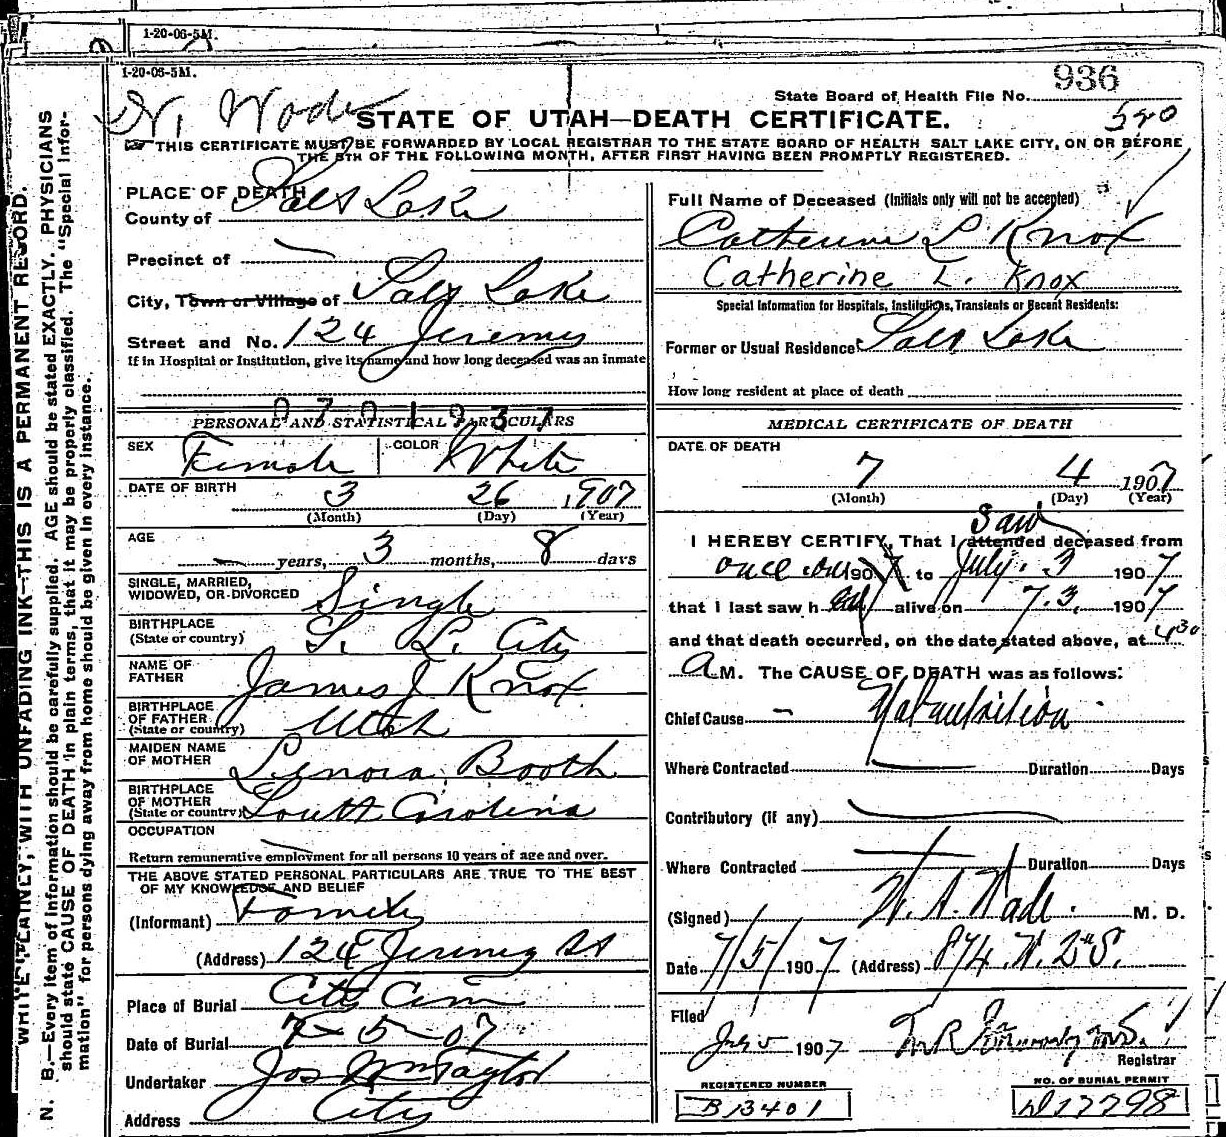 1-20-06-5M.
1-20-06-5M.
936
State Board of Health File No.
520
STATE OF UTAH—DEATH CERTIFICATE.
THIS CERTIFICATE MUST BE FORWARDED BY LOCAL REGISTRAR TO THE STATE BOARD OF HEALTH SALT LAKE CITY, ON OR BEFORE
THE 5TH OF THE FOLLOWING MONTH, AFTER FIRST HAVING BEEN PROMPTLY REGISTERED.
WRITE PLAINLY, WITH UNFADING INK—THIS IS A PERMANENT RECORD.
N. B.—Every item of information should be carefully supplied. AGE should be stated EXACTLY. PHYSICIANS
should state CAUSE OF DEATH in plain terms, that it may be properly classified. The "Special Infor-
mation" for persons dying away from home should be given in every instance.
PLACE OF DEATH
County of Salt Lake
Precinct of —
City, Town or Village of Salt Lake
Street and No. 124 Jeremy
If in Hospital or Institution, give its name and how long deceased was an inmate
0701937
PERSONAL AND STATISTICAL PARTICULARS
SEX Female COLOR White
DATE OF BIRTH 3 26 1907
(Month) (Day) (Year)
AGE — years, 3 months, 8 days
SINGLE, MARRIED,
WIDOWED, OR DIVORCED Single
BIRTHPLACE
(State or country) S. L. City
NAME OF
FATHER James J Knox
BIRTHPLACE
OF FATHER
(State or country) Utah
MAIDEN NAME
OF MOTHER Lenora Booth
BIRTHPLACE
OF MOTHER
(State or country) South Carolina
OCCUPATION —
Return remunerative employment for all persons 10 years of age and over.
THE ABOVE STATED PERSONAL PARTICULARS ARE TRUE TO THE BEST
OF MY KNOWLEDGE AND BELIEF
(Informant) Family
(Address) 124 Jeremy St
Place of Burial City Cem
Date of Burial 7-5-07
Undertaker Jos Wm Taylor
Address City
Full Name of Deceased (Initials only will not be accepted)
Catherine L Knox
Catherine L. Knox
Special Information for Hospitals, Institutions, Transients or Recent Residents:
Former or Usual Residence Salt Lake
How long resident at place of death
MEDICAL CERTIFICATE OF DEATH
DATE OF DEATH
7 4 1907
(Month) (Day) (Year)
saw
I HEREBY CERTIFY, That I attended deceased from
once on 190 to July 3 1907
that I last saw her alive on 7.3. 1907
and that death occurred, on the date stated above, at 4 30
A M. The CAUSE OF DEATH was as follows:
Chief Cause — Malnutrition
Where Contracted — Duration Days
Contributory (if any) —
Where Contracted — Duration Days
(Signed) W. A. Wade. M. D.
Date 7/5/1907 (Address) 874. W. 2nd S.
Filed
July 5 1907
Registrar
REGISTERED NUMBER
B13401
NO. OF BURIAL PERMIT
D17798